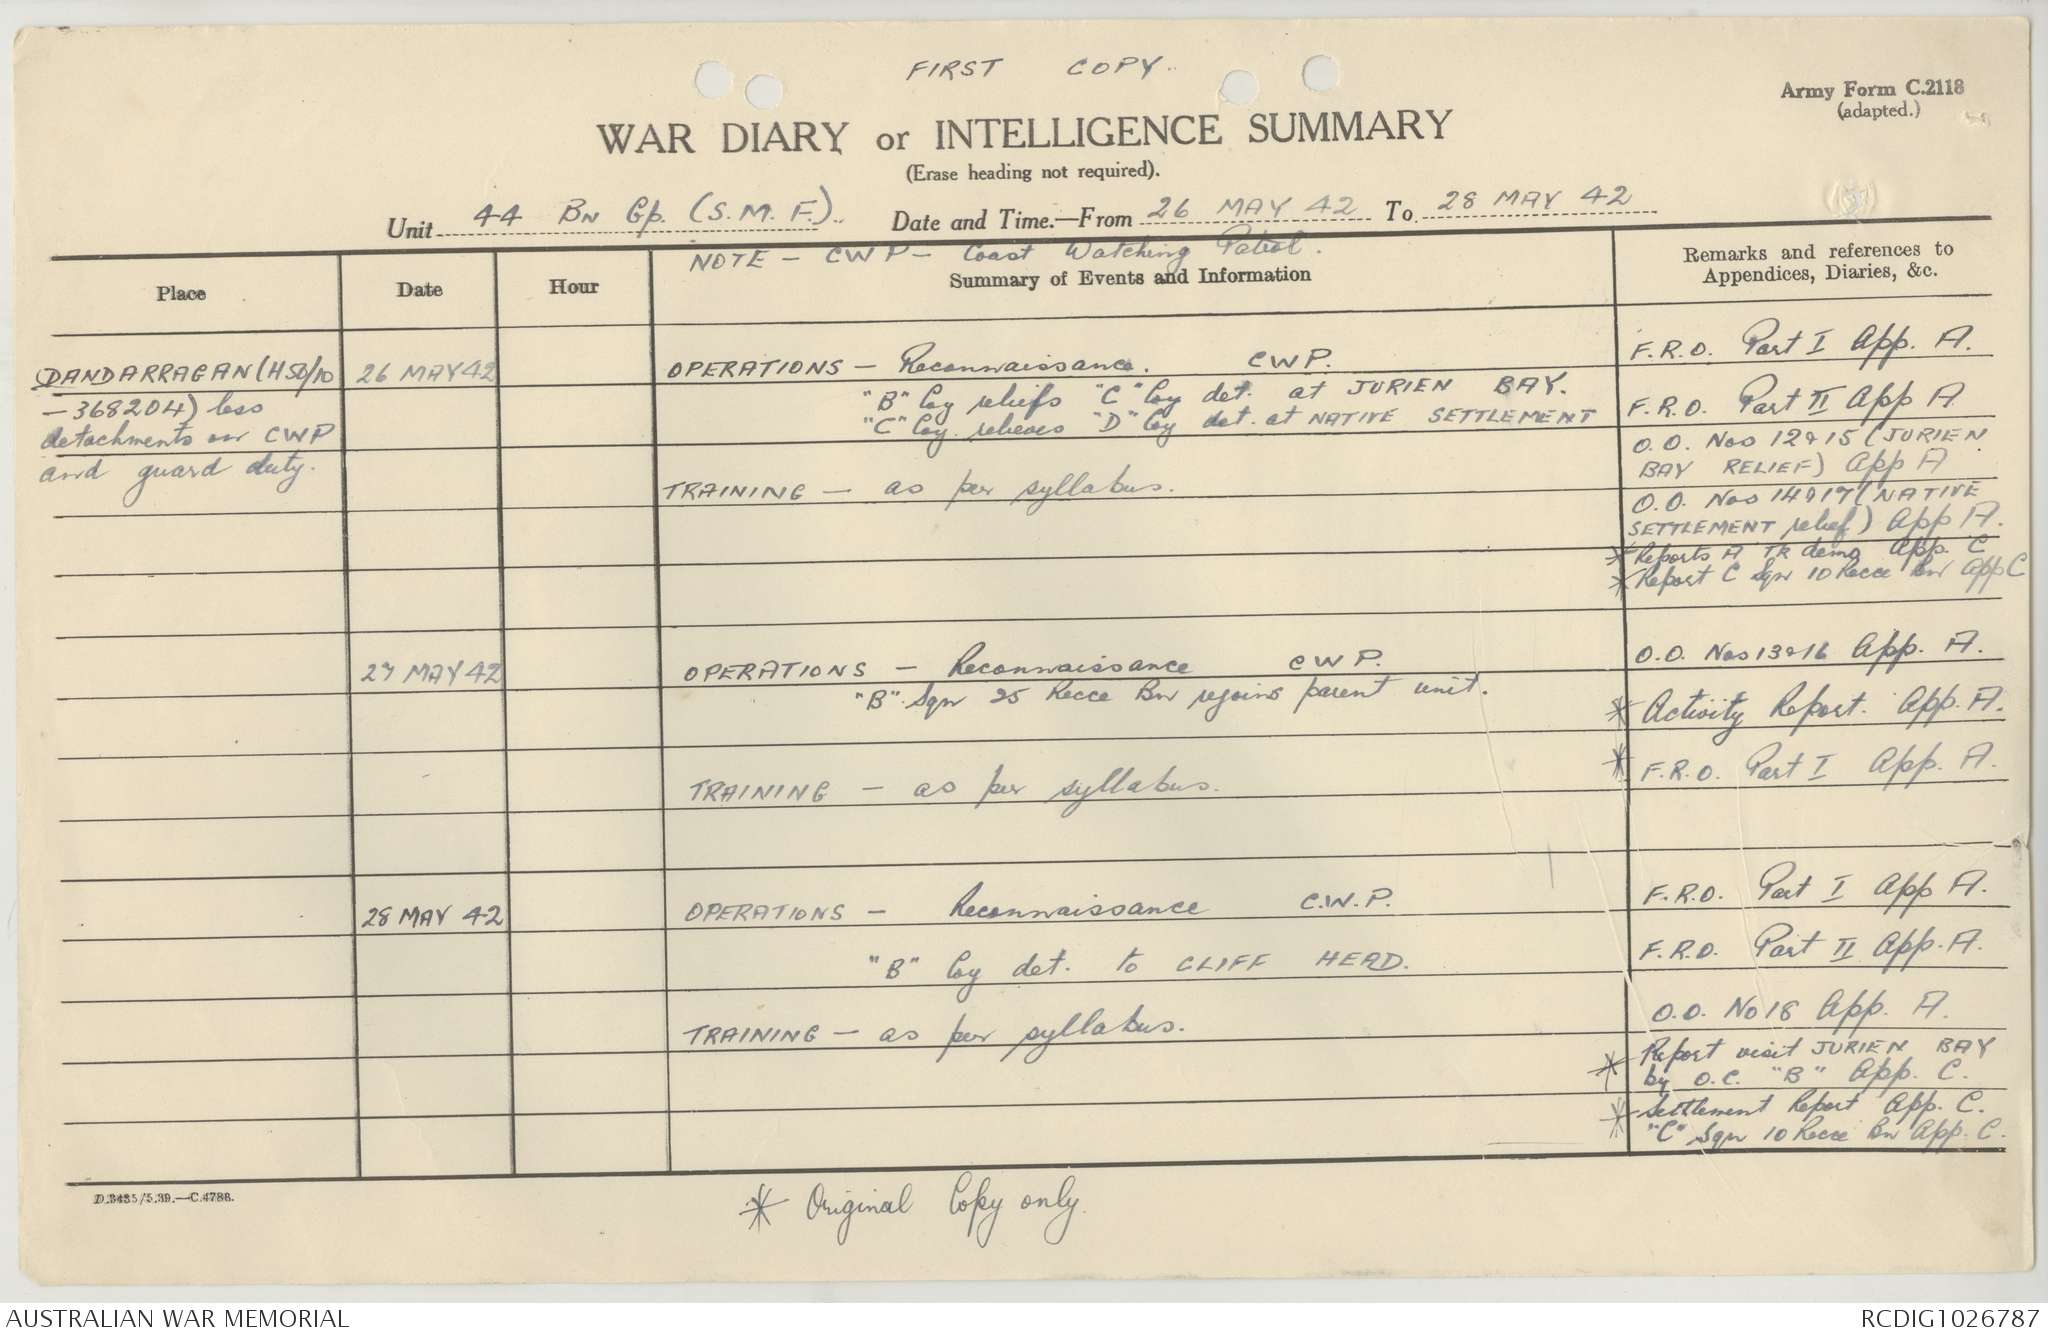 FIRST COPY.
Army Form C.2118
(adapted.)
WAR DIARY or INTELLIGENCE SUMMARY
(Erase heading not required).
Unit 44 Bn Gp. (S.M.F.). Date and Time.—From 26 MAY 42 To 28 MAY 42
NOTE - CWP - Coast Watching Patrol.
Place
Date
Hour
Summary of Events and Information
Remarks and references to
Appendices, Diaries, &c.
DANDARRAGAN (H50/10
- 368204) less
detachments on CWP
and guard duty.
26 MAY 42
OPERATIONS - Reconnaissance. CWP.
"B" Coy reliefs "C" Coy det. at JURIEN BAY.
"C" Coy. relieves "D" Coy det. at NATIVE SETTLEMENT
TRAINING - as per syllabus.
F.R.O. Part I App. A.
F.R.O. Part II App A
O.O. Nos 12&15 (JURIEN
BAY RELIEF) App A
O.O. Nos 14&17 (NATIVE
SETTLEMENT relief) App A.
* Reports A TR demo App. C
* Report C Sqn 10 Recce Bn App C
27 MAY 42
OPERATIONS - Reconnaissance CWP.
"B" Sqn 25 Recce Bn rejoins parent unit.
TRAINING - as per syllabus.
O.O. Nos 13&16 App. A.
* Activity Report. App. A.
* F.R.O. Part I App. A.
28 MAY 42
OPERATIONS - Reconnaissance C.W.P.
"B" Coy det. to CLIFF HEAD.
TRAINING - as per syllabus.
F.R.O. Part I App A.
F.R.O. Part II App. A.
O.O. No 18 App. A.
* Report visit JURIEN BAY
by O.C. "B" App. C.
* Settlement Report App. C.
"C" Sqn 10 Recce Bn App. C.
D.3435/5.39.—C.4788.
* Original Copy only.
AUSTRALIAN WAR MEMORIAL
RCDIG1026787